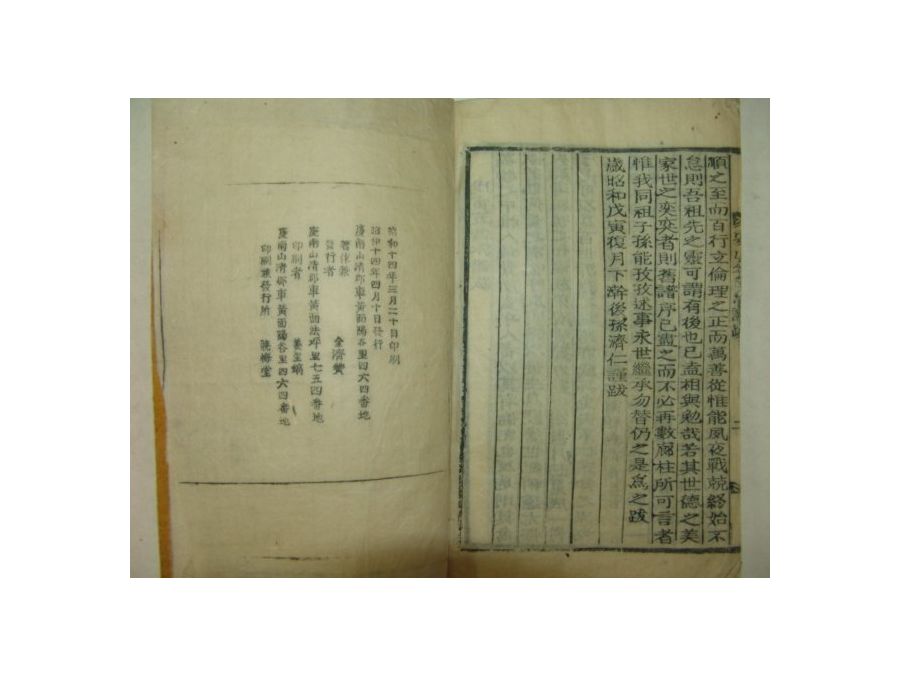 順之至而百行立倫理之正而萬善從惟能夙夜戰兢終始不
怠則吾祖先之靈可謂有後也已盍相與勉哉若其世德之美
家世之奕奕者則舊譜序已盡之而不必再數膠柱所可言者
惟我同祖子孫能孜孜述事永世繼承勿替仍之是爲之跋
歲昭和戊寅復月下澣後孫濟仁謹跋
昭和十四年三月二十日印刷
昭和十四年四月十日發行
慶南山淸郡車黃面陽谷里四六四番地
著作兼
發行者 金濟
慶南山淸郡車黃面法坪里七五四番地
印刷者
慶南山淸郡車黃面陽谷里四六四番地
印刷兼發行所 梅堂